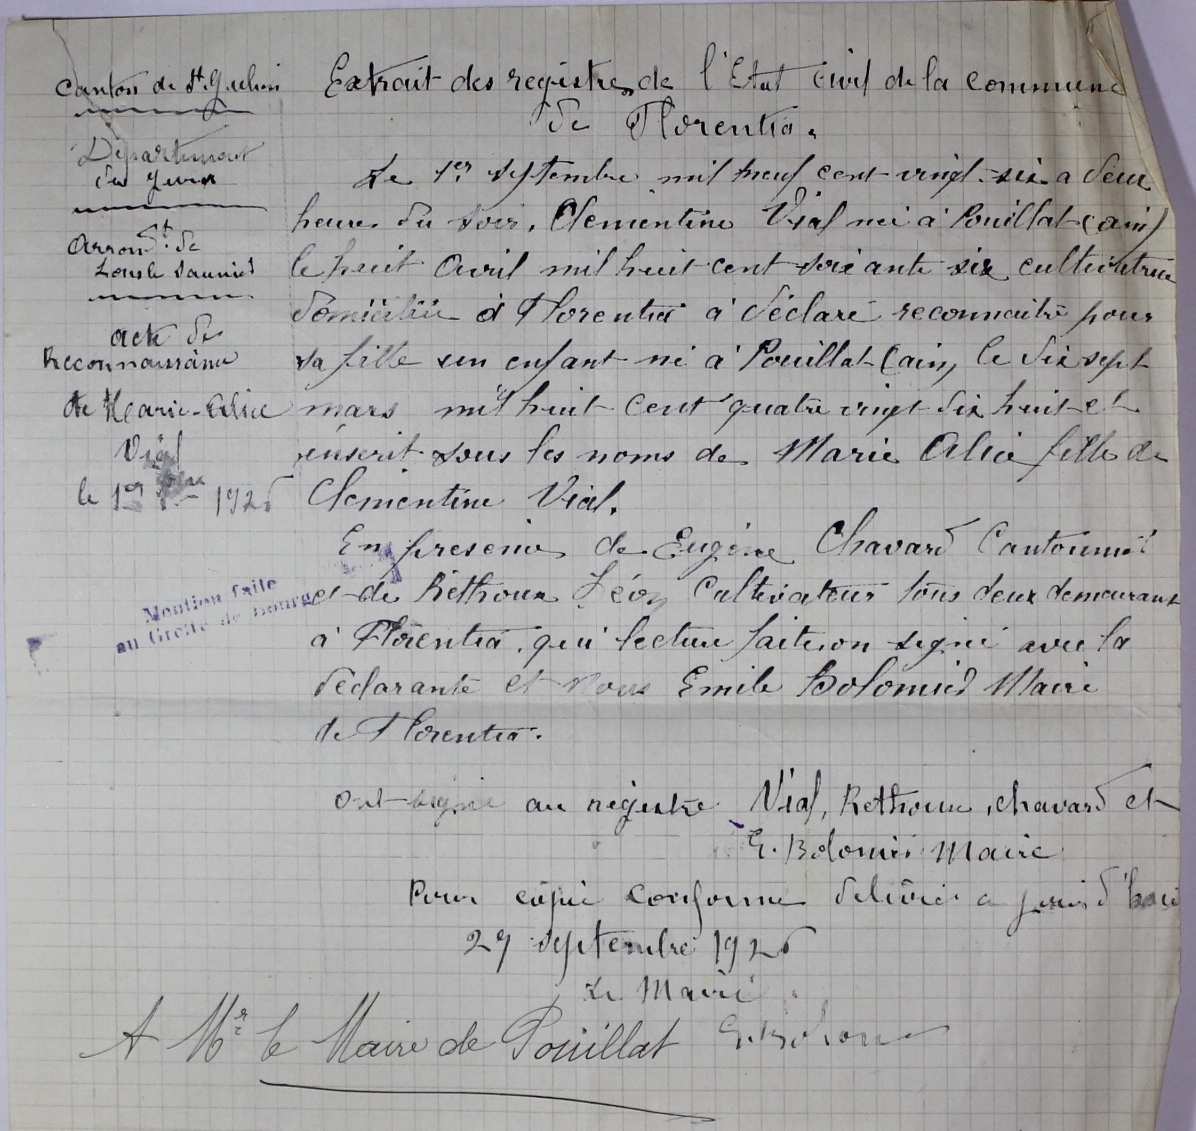 Canton de St Julien
Département
du Jura
Arrondt de
Lons le Saunier
acte de
Reconnaissance
de Marie-Alice
Vial
le 1er 7bre 1926
Mention faite
au Greffe de Bourg
Extrait des registres de l'Etat civil de la commune
de Florentia.
Le 1er septembre mil neuf cent vingt-six a deux
heures du soir, Clementine Vial née à Pouillat (ain)
le huit Avril mil huit cent soixante six cultivatrice
domiciliée à Florentia à déclaré reconnaitre pour
sa fille un enfant né à Pouillat (ain, le dix sept
mars mil huit cent quatre vingt dix huit et
inscrit sous les noms de Marie Alice fille de
Clementine Vial.
En presence de Eugène Chavard Cantonnier
et de Réthoux Léon Cultivateur tous deux demeurant
à Florentia, qui lecture faite, on signé avec la
déclarante et Nous Emile Bolomier Maire
de Florentia.
ont signé au registre Vial, Rethoux, chavard et
E. Bolomier Maire
Pour copie conforme délivrée a jourd'hui
29 septembre 1926
Le Maire
A Mr le Maire de Pouillat